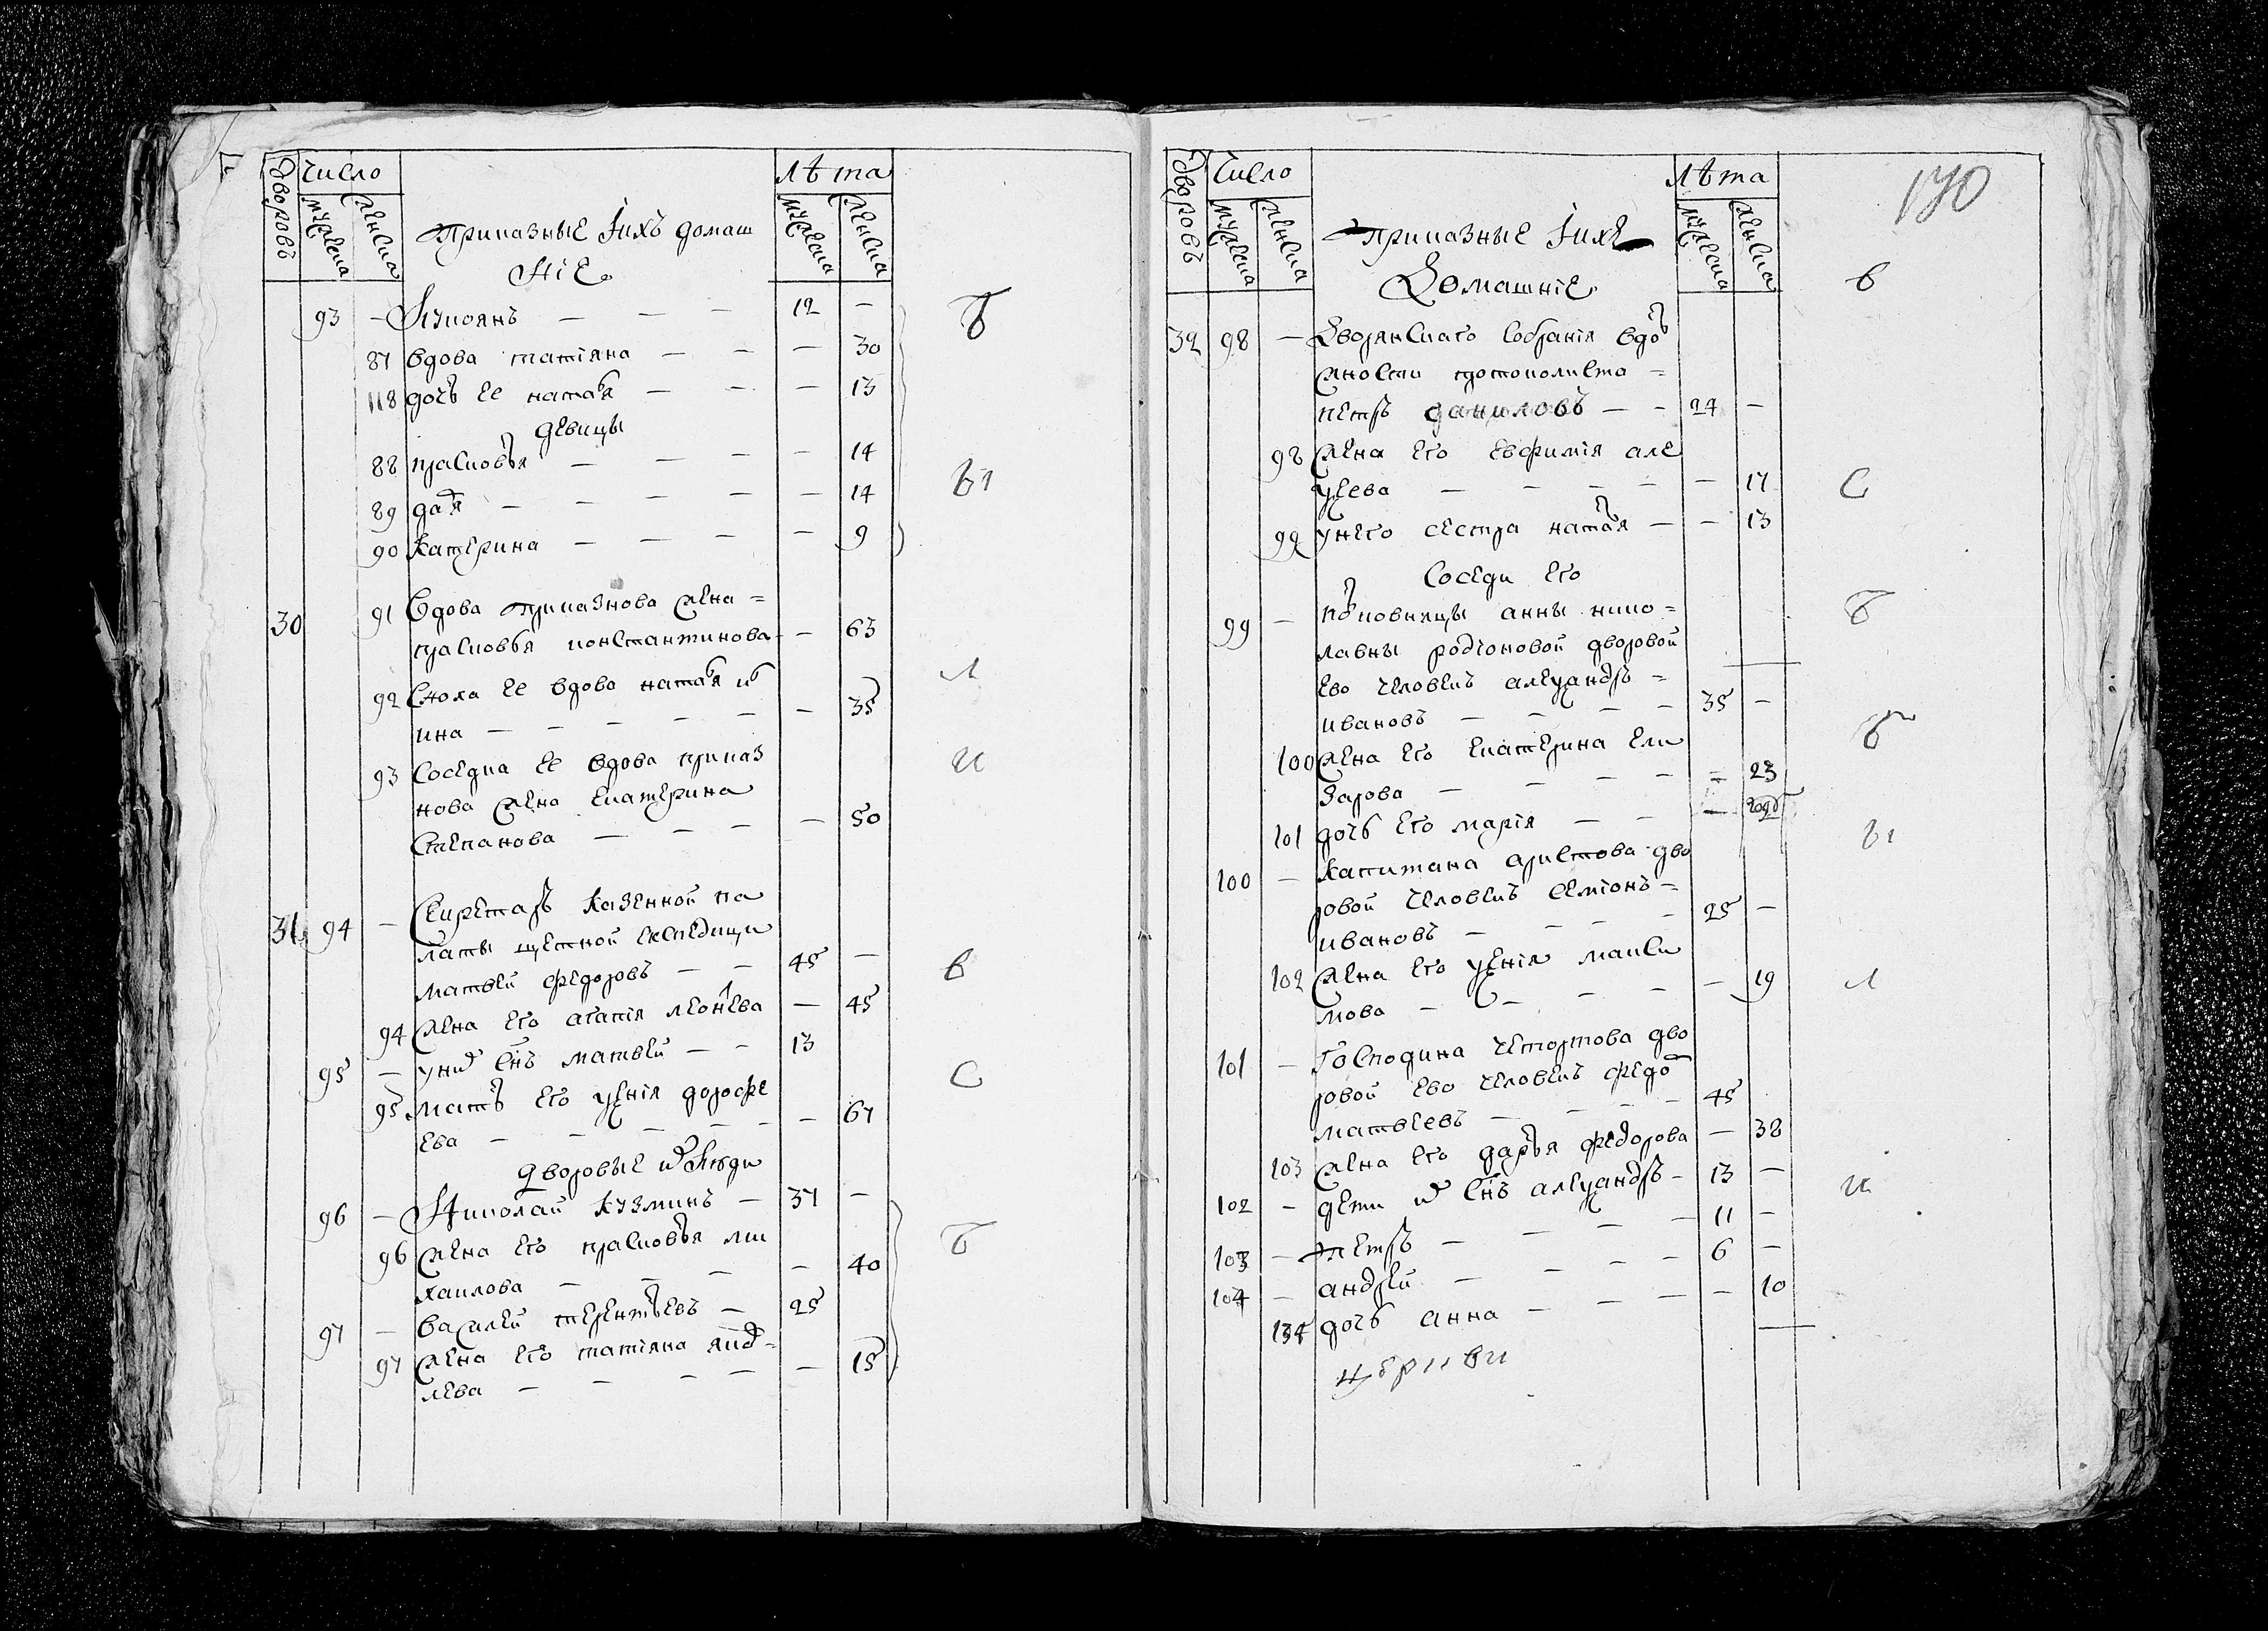 дворовъ число мужеска женска приказные Iихъ домаш лѣта мужеска женска
нiе
93 — Кузмянъ — — — 12 — Б
87 вдова татiяна — — — 30
118 дочь ее наталья — — — 13
девицы
88 прасковья — — — — 14
89 дарья — — — — 14 Ы
90 катерина — — — — 9
30 91 Вдова приказнова жена =
прасковья константинова — 63
92 Сноха ее вдова наталья иль Л
ина — — — — — 35
93 Соседка ее вдова приказ И
нова жена екатерина
Степанова — — — — 50
31 94 — Секретарь казенной па
латы щетной експедици
матвей федоровъ — — 45 — В
94 жена его агапiя леонтьева — 45
95 — у них сынъ матвей — — 13
95 мать его ксенiя дорофе С
ева — — — — — 67
дворовые их люди
96 — Николай кузминъ — 37 —
96 жена его прасковья ми Б
хаилова — — — — 40
97 — василей терентьевъ — 25
97 жена его татiяна яков=
лева — — — — — 15
дворовъ число мужеска женска приказные Iихъ лѣта мужеска женска 170
Домашнiе В
32 98 — Дворянскаго собранiя в до
жности протоколиста =
петръ даниловъ — — 24 —
98 жена его евфимiя але
ксева — — — — — 17 С
99 у него сестра наталья — — 13
Соседи его
99 — полковницы анны нико= Б
лавны родiоновой дворовой
ево человекъ александръ =
ивановъ — — — — 35 —
100 жена его екатерина ели Б
зарова — — — — 23
101 дочь его марiя — — — годъ
100 — капитана аристова дво Ы
ровой человекъ семiонъ =
ивановъ — — — — 25 —
102 жена его ксенiя макси
мова — — — — — 19 Л
101 — Господина чертова дво
ровой ево человекъ федор
матвеевъ — — — — 45
103 жена его дарья федорова — 38
102 — дети их сынъ александръ — 13 — И
103 — петръ — — — — 11 —
104 — андрей — — — — 6 —
134 дочь анна — — — — — 10
церкви